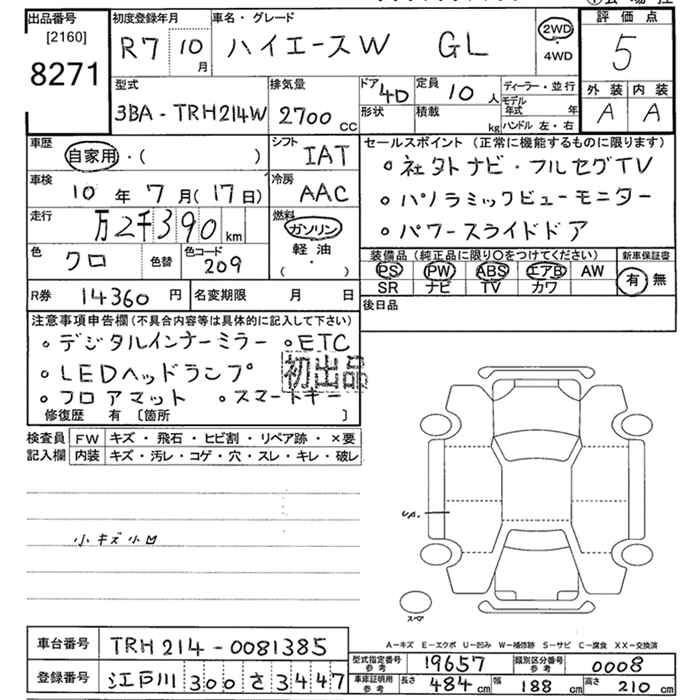 出品番号 [2160] 8271
初度登録年月 R7 10月
車名・グレード ハイエースW GL
2WD・4WD
評価点 5
外装 内装
A A
型式 3BA-TRH214W
排気量 2700cc
ドア 4D 形状
定員 10人
積載 kg
ディーラー・並行
モデル年式 年
ハンドル 左・右
車歴 自家用・( )
シフト IAT
車検 10年7月(17日)
冷房 AAC
走行 万2千390km
燃料 ガソリン 軽油 ( ・ )
色 クロ 色替 色コード 209
R券 14360円 名変期限 月 日
セールスポイント(正常に機能するものに限ります)
。社外ナビ・フルセグTV
。パノラミックビューモニター
。パワースライドドア
装備品(純正品に限り○をつけてください)
PS PW ABS エアB AW
SR ナビ TV カワ
新車保証書
有・無
後日品
注意事項申告欄(不具合内容等は具体的に記入して下さい)
。デジタルインナーミラー 。ETC
。LEDヘッドランプ
。フロアマット 。スマートキー
初出品
修復歴 有〔箇所 〕
検査員記入欄
FW キズ・飛石・ヒビ割・リペア跡・×要
内装 キズ・汚レ・コゲ・穴・スレ・キレ・破レ
小キズ小凹
スペア
A−キズ E−エクボ U−凹み W−補修跡 S−サビ C−腐食 XX−交換済
車台番号 TRH214-0081385
登録番号 江戸川300さ3447
型式指定番号 参考 19657 類別区分番号 参考 0008
車庫証明用 参考 長さ 484cm 幅 188cm 高さ 210cm